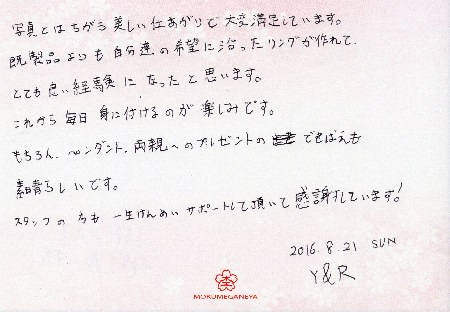 写真とはちがう美しい仕あがりで大変満足しています。
既製品よりも自分達の希望に沿ったリングが作れて、
とても良い経験になったと思います。
これから毎日身に付けるのが楽しみです。
もちろん、ペンダント、両親へのプレゼントの できばえも
素晴らしいです。
スタッフの方も一生けんめいサポートして頂いて感謝しています!
2016.8.21 SUN
Y&R
MOKUMEGANEYA